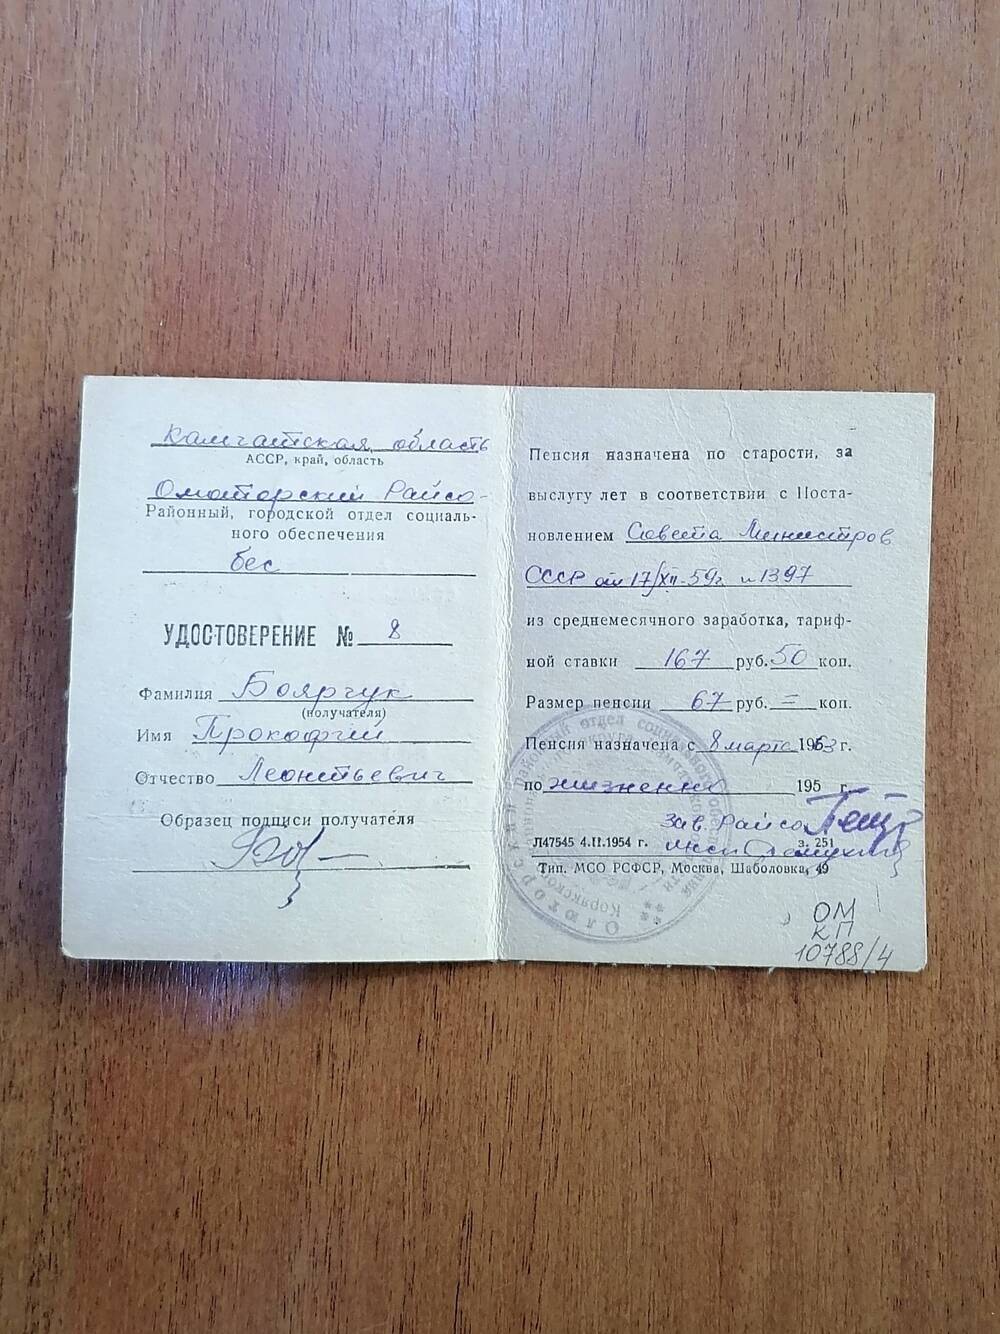 Камчатская область
АССР, край, область
Олюторский Райсо-
Районный, городской отдел социаль-
ного обеспечения
бес
УДОСТОВЕРЕНИЕ № 8
Фамилия Боярчук
(получателя)
Имя Прокофий
Отчество Леонтьевич
Образец подписи получателя
Пенсия назначена по старости, за
выслугу лет в соответствии с Поста-
новлением Совета Министров
СССР от 17/XII-59г. н 1397
из среднемесячного заработка, тариф-
ной ставки 167 руб. 50 коп.
Размер пенсии 67 руб. = коп.
Пенсия назначена с 8 марта 1963 г.
по жизненно 195 г.
Зав. Райсо
Л47545 4.II.1954 г. з. 251
Тип. МСО РСФСР, Москва, Шаболовка, 49
Олюторский районный отдел социального обеспечения
ОМ
КП
10788/4